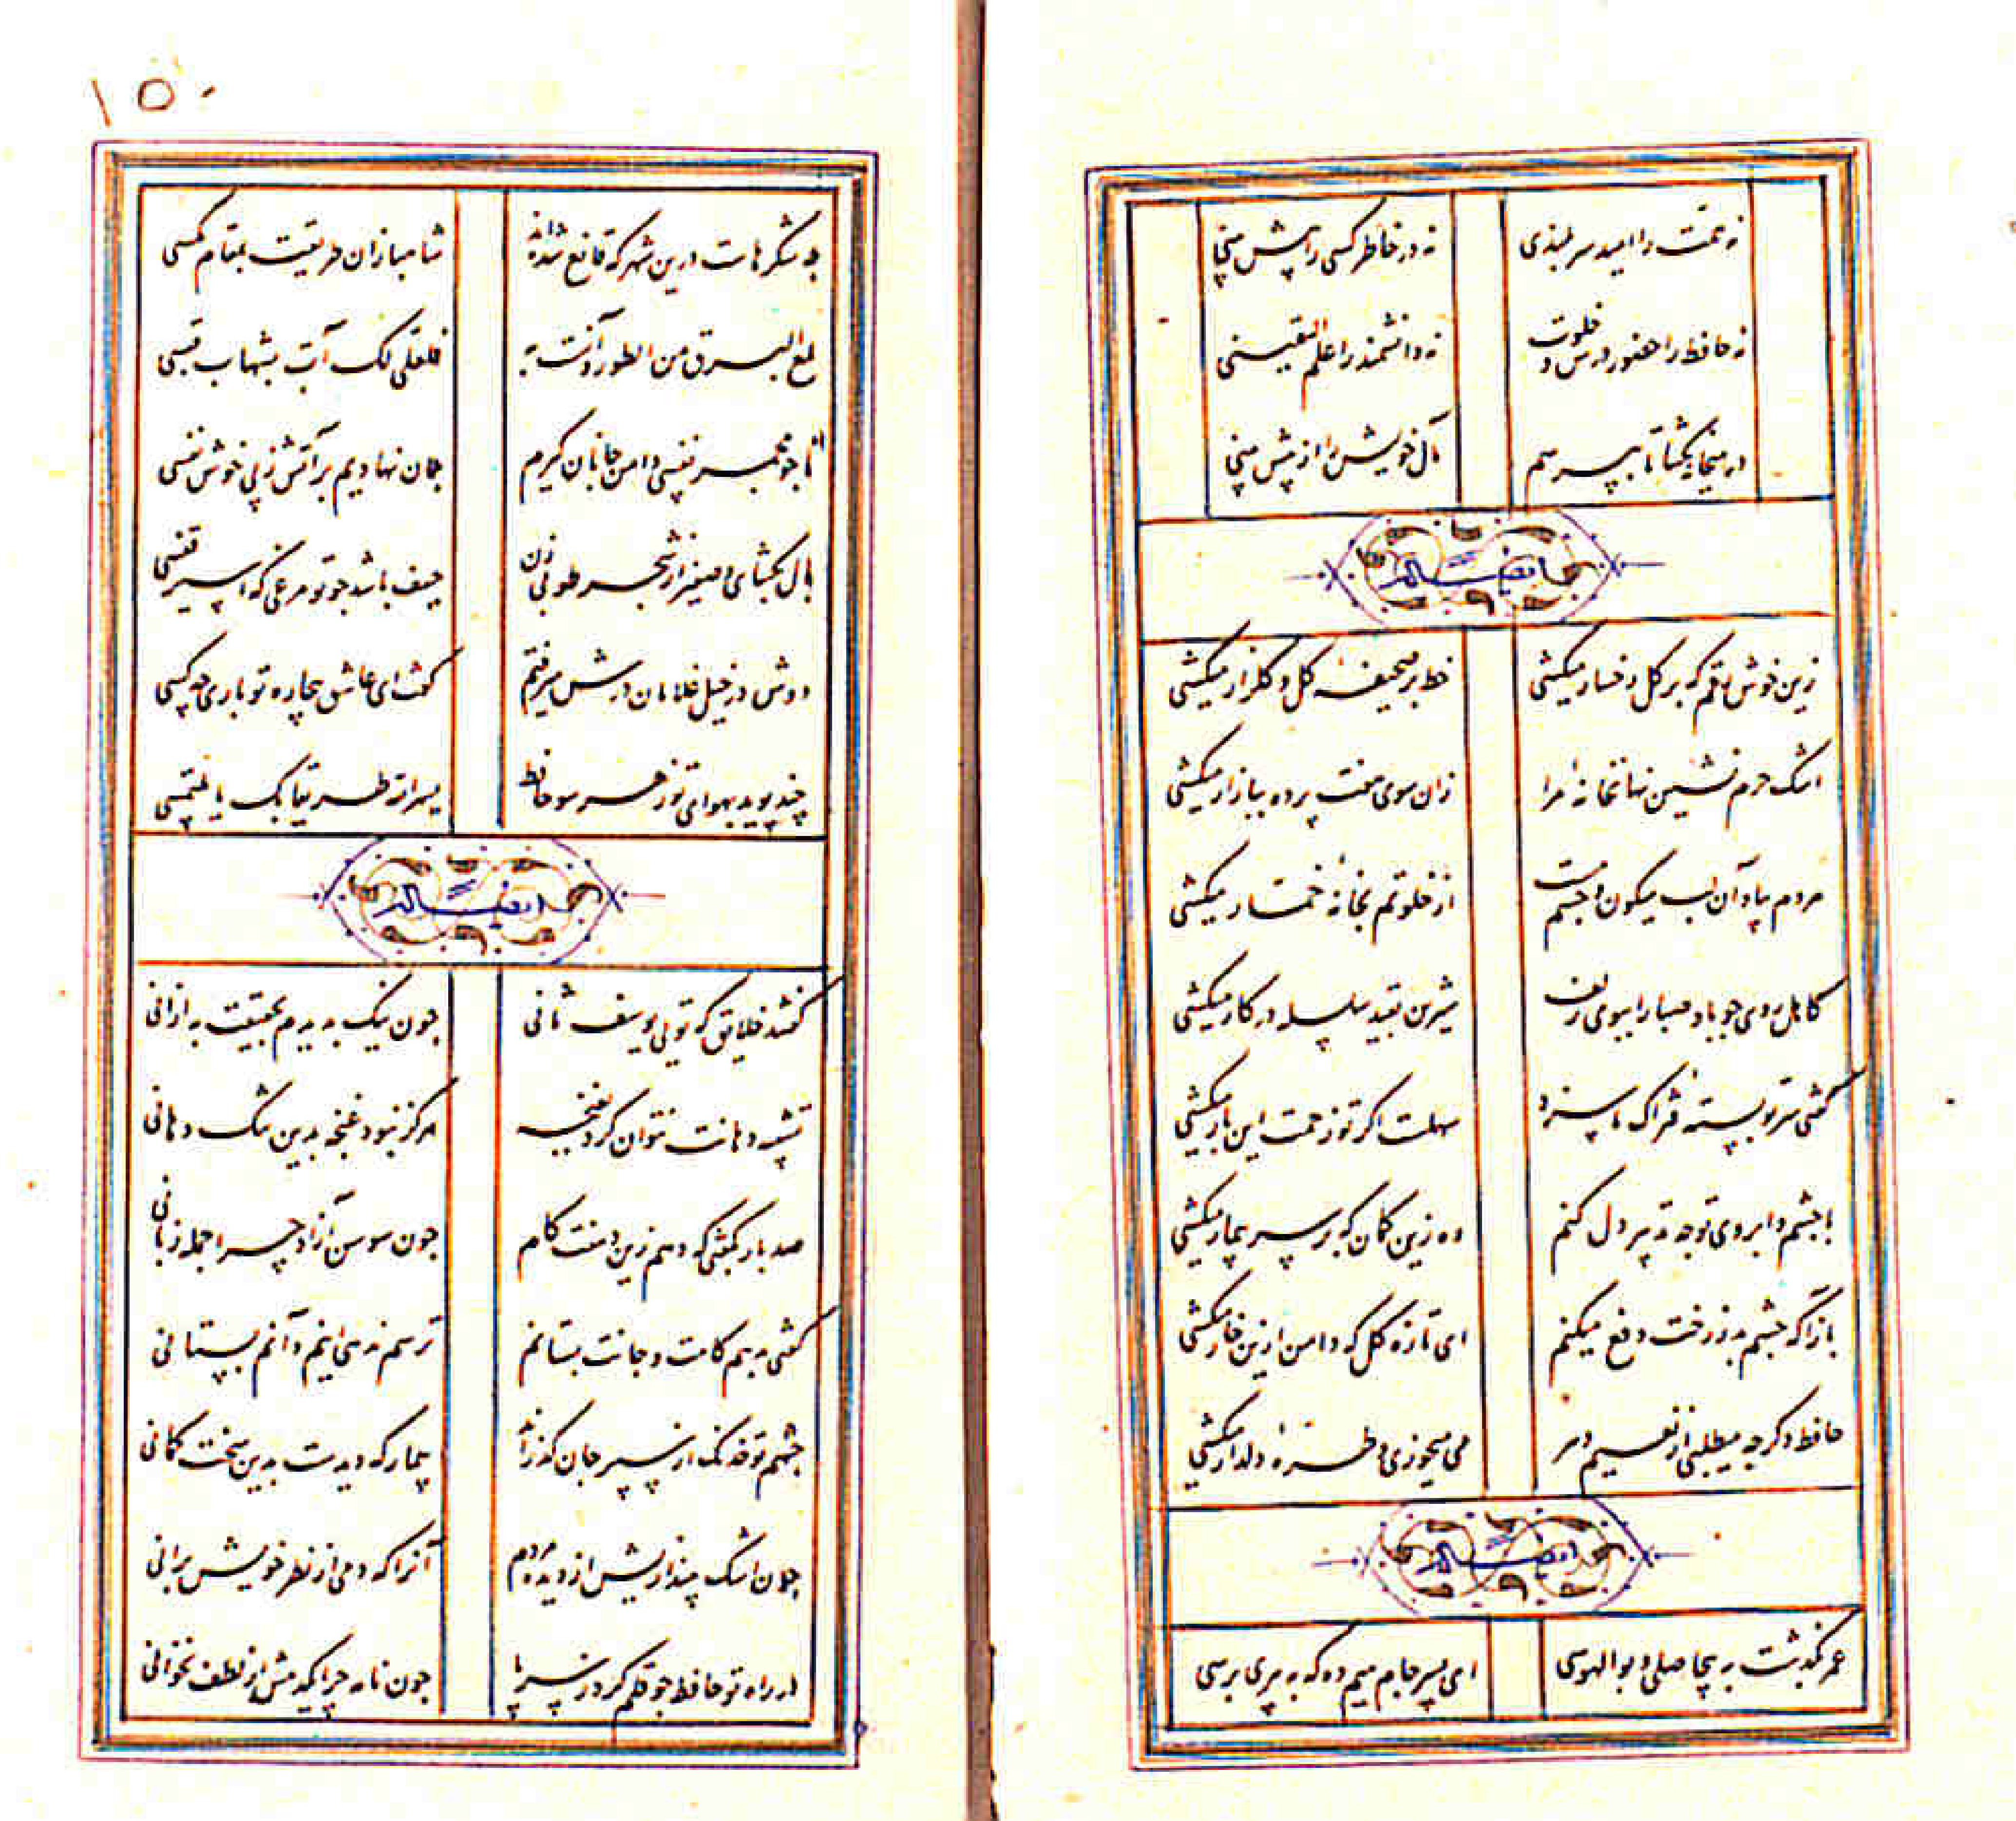 نه همت را امید سر بلندی
نه در خاطر کسی را پیش بینی
نه حافظ را حضور درس و خلوت
نه دانشمند را علم الیقینی
در میخانه بکشا تا بپرسم
مآل خویش را از پیش بینی
زین خوش رقم که بر کل رخسار میکشی
خط بر صحیفه کل و کلزار میکشی
اشک حرم نشین نهانخانه مرا
زان سوی هفت پرده ببازار میکشی
هردم بیاد آن لب میکون و چشم مست
از خلوتم بخانه خمار میکشی
کاهل روی جو باد صبا را ببوی زلف
شیرین بقید سلسله در کار میکشی
کفتی سر تو بسته فتراک ما سزد
سهلست اکر تو زحمت این بار میکشی
با چشم و ابروی تو چه تدبیر دل کنم
وه زین کمان که بر سر بیمار میکشی
بازآ که چشم بد ز رخت دفع میکنم
ای تازه کل که دامن ازین خار میکشی
حافظ دکر چه میطلبی از نعیم دهر
می میخوری و طره دلدار میکشی
عمر بکذشت به بیحاصلی و بوالهوسی
ای پسر جام میم ده که به پیری برسی
۱۵۰
چه شکرهاست درین شهر که قانع شده‌اند
شاهبازان طریقت بمقام مکسی
لمع البرق من الطور و آنست به
فلعلی لک آت بشهاب قبسی
تا جو مجمر نفسی دامن جانان کیرم
جان نهادیم بر آتش ز پی خوش نفسی
بال بکشای و صفیر از شجر طوبی زن
حیف باشد جو تو مرغی که اسیر قفسی
دوش در خیل غلامان درش میرفتم
کفت ای عاشق بیچاره تو باری چه کسی
چند پوید بهوای تو ز هر سو حافظ
یسر الله طریقا بک یا ملتمسی
کفتند خلایق که تویی یوسف ثانی
جون نیک بدیدم بحقیقت به ازانی
تشبیه دهانت نتوان کرد بغنجه
هرکز نبود غنجه بدین تنک دهانی
صد بار بکفتی که دهم زین دهنت کام
جون سوسن آزاد چرا جمله زبانی
کفتی بدهم کامت و جانت بستانم
ترسم ندهی اینم و آنم بستانی
چشم تو خدنک از سپر جان کذراند
بیمار که دیدست بدین سخت کمانی
جون اشک بیندازیش از دیده مردم
آنرا که دمی از نظر خویش برانی
در راه تو حافظ جو قلم کرد ز سر پا
جون نامه چرا یکدمش از لطف نخوانی